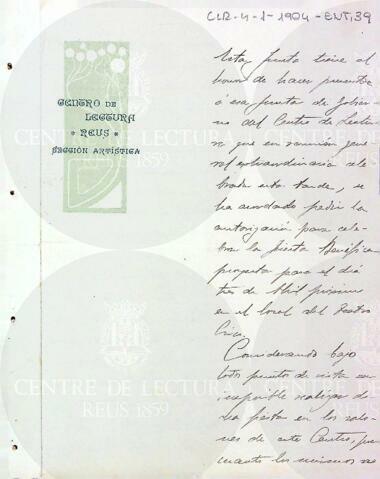 CLR-4-1-1904-ENT,39
CENTRO DE
LECTURA
REUS
SECCIÓN ARTÍSTICA
Esta junta tiene el
honor de hacer presente
á esa junta de Gobier
no del Centro de Lectu
ra que en reunión gene
ral extraordinaria cele
brada esta tarde, se
ha acordado pedir la
autorización para cele
brar la fiesta Benéfica
proyecto para el día
tres de Abril próximo
en el local del Teatro
Circo.
Considerando bajo
todos puntos de vista
imposible realizar di
cha fiesta en los salo
nes de este Centro, por
cuanto los mismos no
CENTRE DE LECTURA
REUS 1859
CENTRE DE LECTURA
REUS 1859